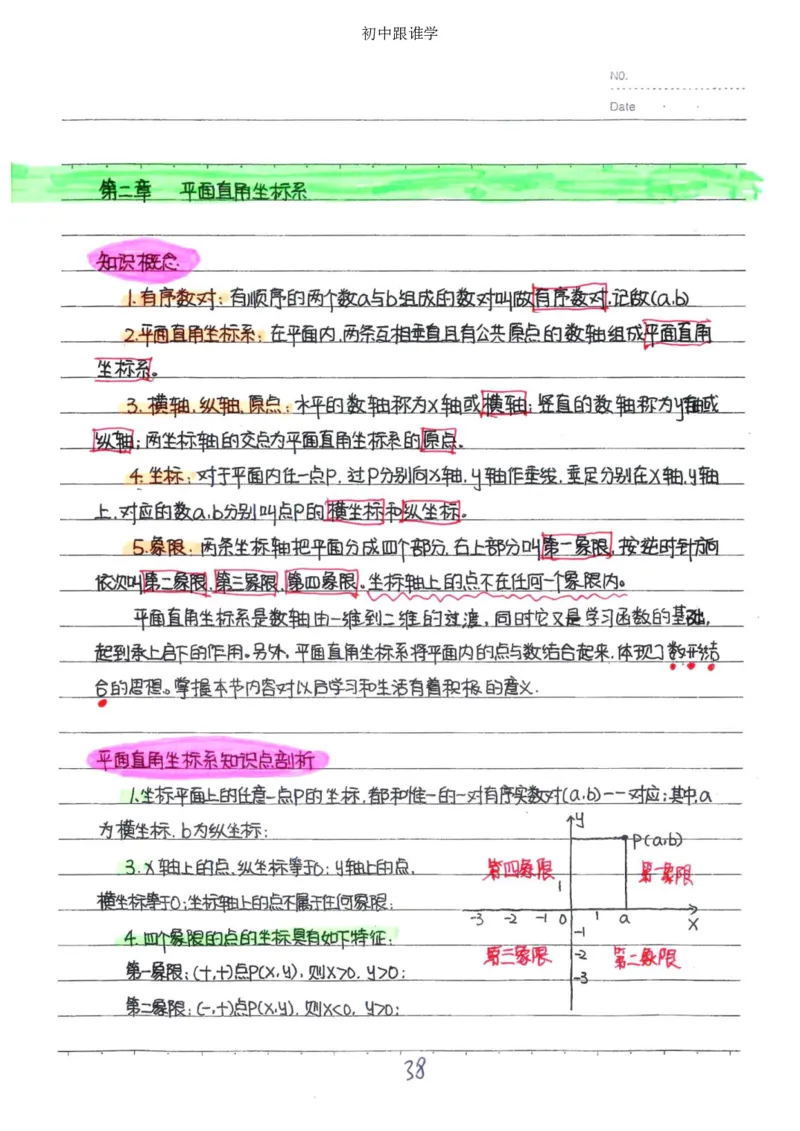 初中跟谁学
NO.
Date
第二章 平面直角坐标系
知识概念:
1.有序数对:有顺序的两个数a与b组成的数对叫做有序数对,记做(a,b)
2.平面直角坐标系:在平面内,两条互相垂直且有公共原点的数轴组成平面直角
坐标系。
3.横轴,纵轴,原点:水平的数轴称为x轴或横轴;竖直的数轴称为y轴或
纵轴;两坐标轴的交点为平面直角坐标系的原点。
4.坐标:对于平面内任一点P,过P分别向x轴,y轴作垂线,垂足分别在x轴,y轴
上,对应的数a,b分别叫点P的横坐标和纵坐标。
5.象限:两条坐标轴把平面分成四个部分,右上部分叫第一象限,按逆时针方向
依次叫第二象限,第三象限,第四象限。坐标轴上的点不在任何一个象限内。
平面直角坐标系是数轴由一维到二维的过渡,同时它又是学习函数的基础,
起到承上启下的作用。另外,平面直角坐标系将平面内的点与数结合起来,体现了数形结
合的思想。掌握本节内容对以后学习和生活有着积极的意义.
平面直角坐标系知识点剖析
1.坐标平面上的任意一点P的坐标,都和惟一的一对有序实数对(a,b)一一对应;其中,a
为横坐标,b为纵坐标;
3.x轴上的点,纵坐标等于0;y轴上的点,
横坐标等于0;坐标轴上的点不属于任何象限;
4.四个象限的点的坐标具有如下特征:
第一象限:(+,+)点P(x,y),则x>0,y>0;
第二象限:(-,+)点P(x,y),则x<0,y>0;
y
P(a,b)
第四象限
第一象限
1
-3 -2 -1 0 1 a
x
-1
第三象限
-2
第二象限
-3
38